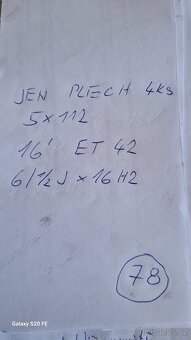 JEN PLECH 4KS
5x112
16' ET 42
6/1/2 J x 16 H2
78
Galaxy S20 FE